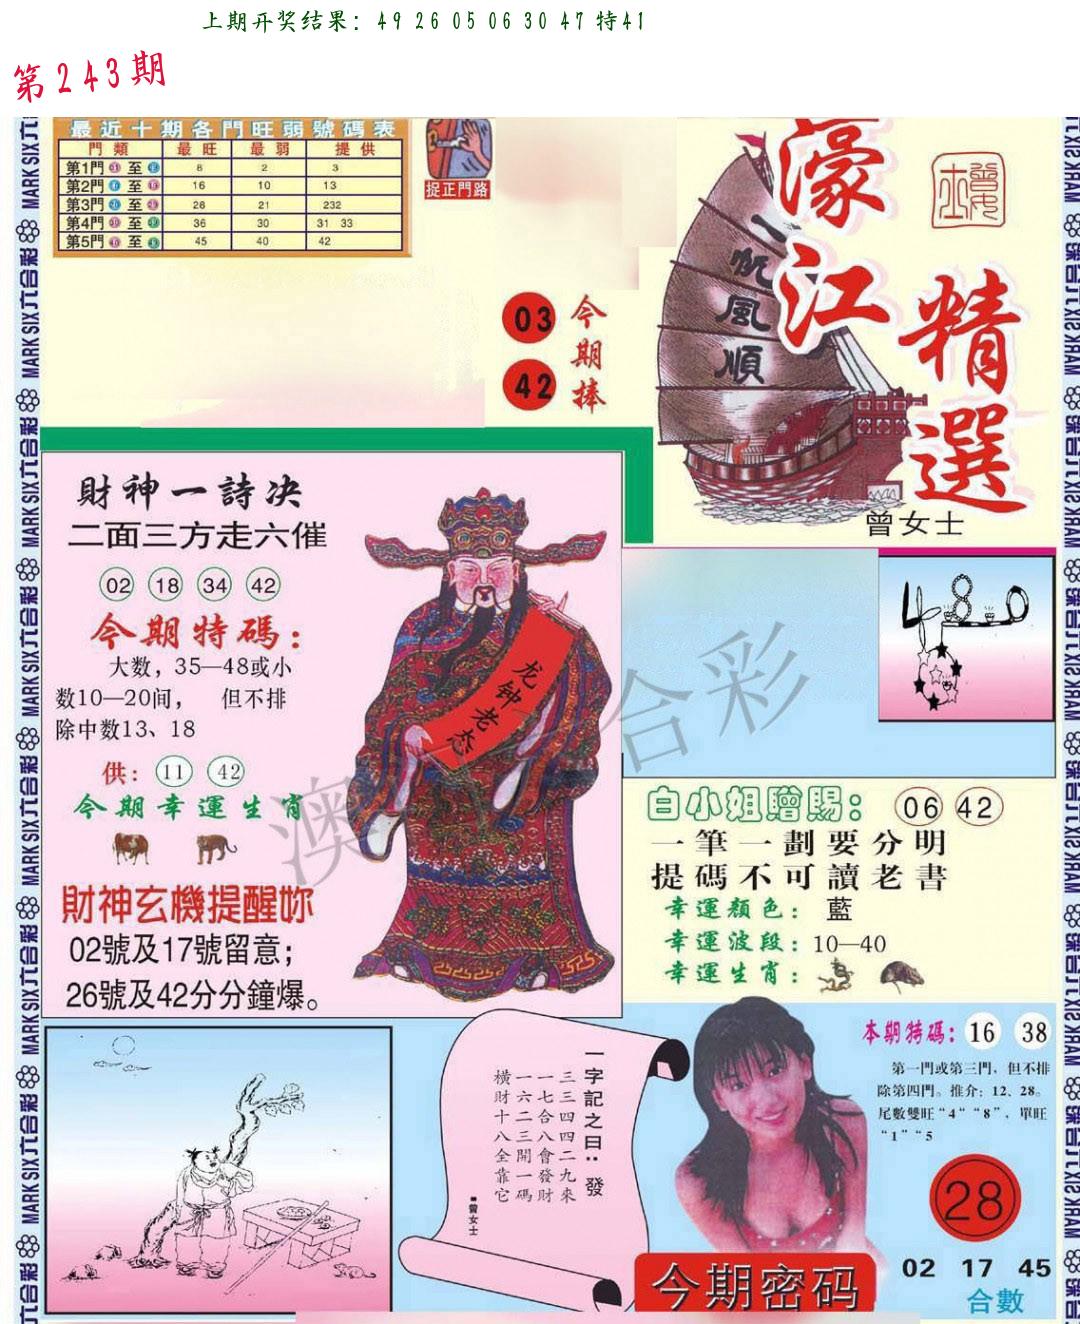 上期开奖结果：49 26 05 06 30 47 特41
第243期
最近十期各門旺弱號碼表
門類 最旺 最弱 提供
第1門 至 8 2 3
第2門 至 16 10 13
第3門 至 28 21 232
第4門 至 36 30 31 33
第5門 至 45 40 42
捉正門路
03
42
今期捧
一帆風順
濠江
精選
曾女士
財神一詩决
二面三方走六催
02 18 34 42
今期特碼：
大数，35—48或小
数10—20间， 但不排
除中数13、18
供：11 42
今期幸運生肖
財神玄機提醒妳
02號及17號留意；
26號及42分分鐘爆。
龙钟老态
480
白小姐贈賜：06 42
一筆一劃要分明
提碼不可讀老書
幸運顏色：藍
幸運波段：10—40
幸運生肖：
一字記之曰：發
三三四四二九來
一七合八會發財
一六二三開一碼
橫財十八全靠它
■曾女士
本期特碼：16 38
第一門或第三門，但不排
除第四門。推介：12、28。
尾數雙旺“4”“8”，單旺
“1”“5
28
02 17 45
合數
今期密码
MARK SIX六合彩
澳 合彩